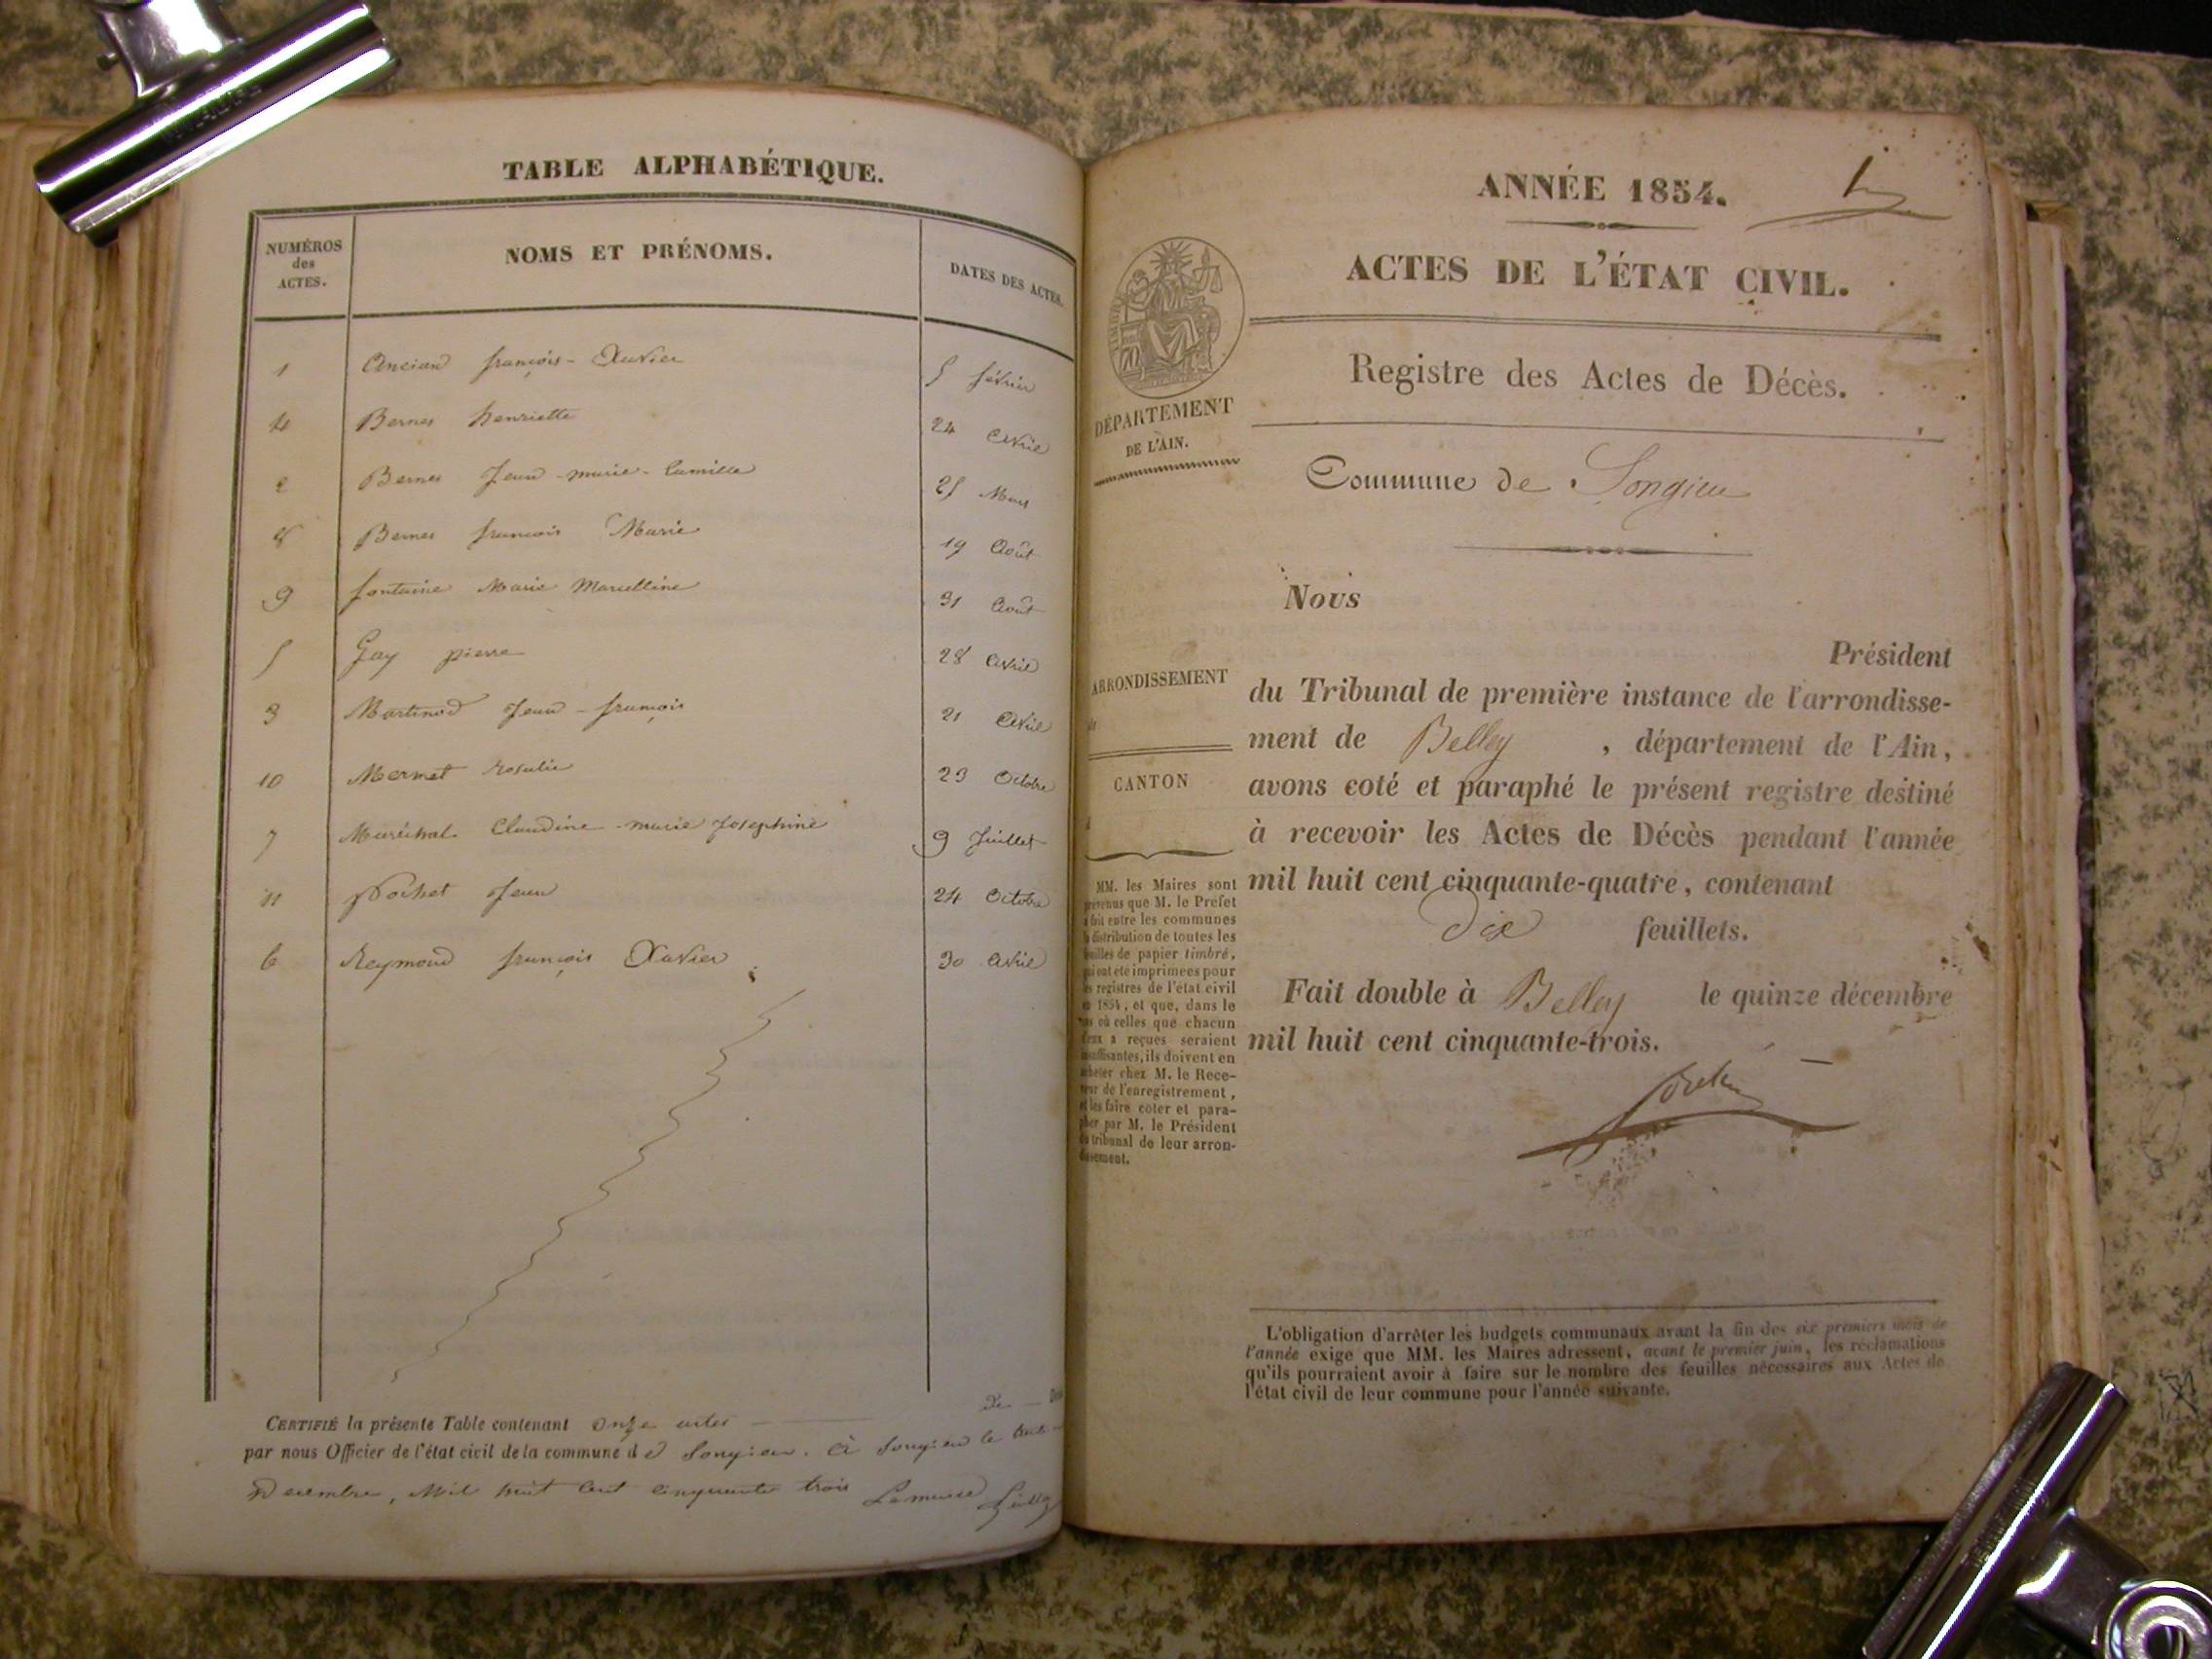 TABLE ALPHABÉTIQUE.
NUMÉROS des ACTES.
NOMS ET PRÉNOMS.
DATES DES ACTES.
1 Ancian françois-Xavier 5 février
4 Bernes henriette 24 Avril
2 Bernes Jean-marie-Camille 25 Mars
8 Bernes francois Marie 19 Août
9 fontaine Marie Marcelline 31 Août
5 Gay pierre 28 Avril
3 Martinod Jean-françois 21 Avril
10 Mermet rosalie 23 Octobre
7 Maréchal Claudine-marie Josephine 9 Juillet
11 pochet Jean 24 Octobre
6 Reymond françois Xavier 30 Avril
CERTIFIÉ la présente Table contenant onze actes de
par nous Officier de l'état civil de la commune de Songieu. à Songieu le
Decembre, Mil huit Cent cinquante trois Le maire
ANNÉE 1854.
1
ACTES DE L'ÉTAT CIVIL.
Registre des Actes de Décès.
DÉPARTEMENT
DE L'AIN.
Commune de Songieu
Nous
Président
du Tribunal de première instance de l'arrondisse-
ment de Belley, département de l'Ain,
avons coté et paraphé le présent registre destiné
à recevoir les Actes de Décès pendant l'année
mil huit cent cinquante-quatre, contenant
dix feuillets.
Fait double à Belley le quinze décembre
mil huit cent cinquante-trois.
ARRONDISSEMENT
CANTON
MM. les Maires sont
prévenus que M. le Préfet
a fait entre les communes
la distribution de toutes les
feuilles de papier timbré,
qui ont été imprimées pour
les registres de l'état civil
de 1854, et que, dans le
cas où celles que chacun
d'eux a reçues seraient
insuffisantes, ils doivent en
acheter chez M. le Rece-
veur de l'enregistrement,
et les faire coter et para-
pher par M. le Président
du tribunal de leur arron-
dissement.
L'obligation d'arrêter les budgets communaux avant la fin des six premiers mois de
l'année exige que MM. les Maires adressent, avant le premier juin, les réclamations
qu'ils pourraient avoir à faire sur le nombre des feuilles nécessaires aux Actes de
l'état civil de leur commune pour l'année suivante.